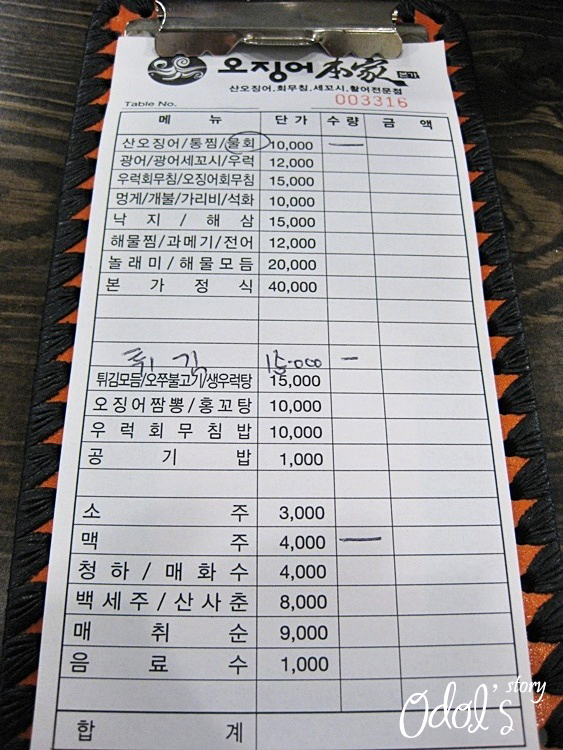 오징어本家 본가
산오징어.회무침.세꼬시.활어전문점
Table No. 003316
메 뉴 단 가 수 량 금 액
산오징어/통찜/물회 10,000 一
광어/광어세꼬시/우럭 12,000
우럭회무침/오징어회무침 15,000
멍게/개불/가리비/석화 10,000
낙 지 / 해 삼 15,000
해물찜/과메기/전어 12,000
놀래미/해물모듬 20,000
본 가 정 식 40,000
튀 김 15.000 一
튀김모듬/오쭈불고기/생우럭탕 15,000
오징어짬뽕/홍꼬탕 10,000
우 럭 회 무 침 밥 10,000
공 기 밥 1,000
소 주 3,000
맥 주 4,000 一
청 하 / 매 화 수 4,000
백 세 주 / 산 사 춘 8,000
매 취 순 9,000
음 료 수 1,000
합 계
Odol's story